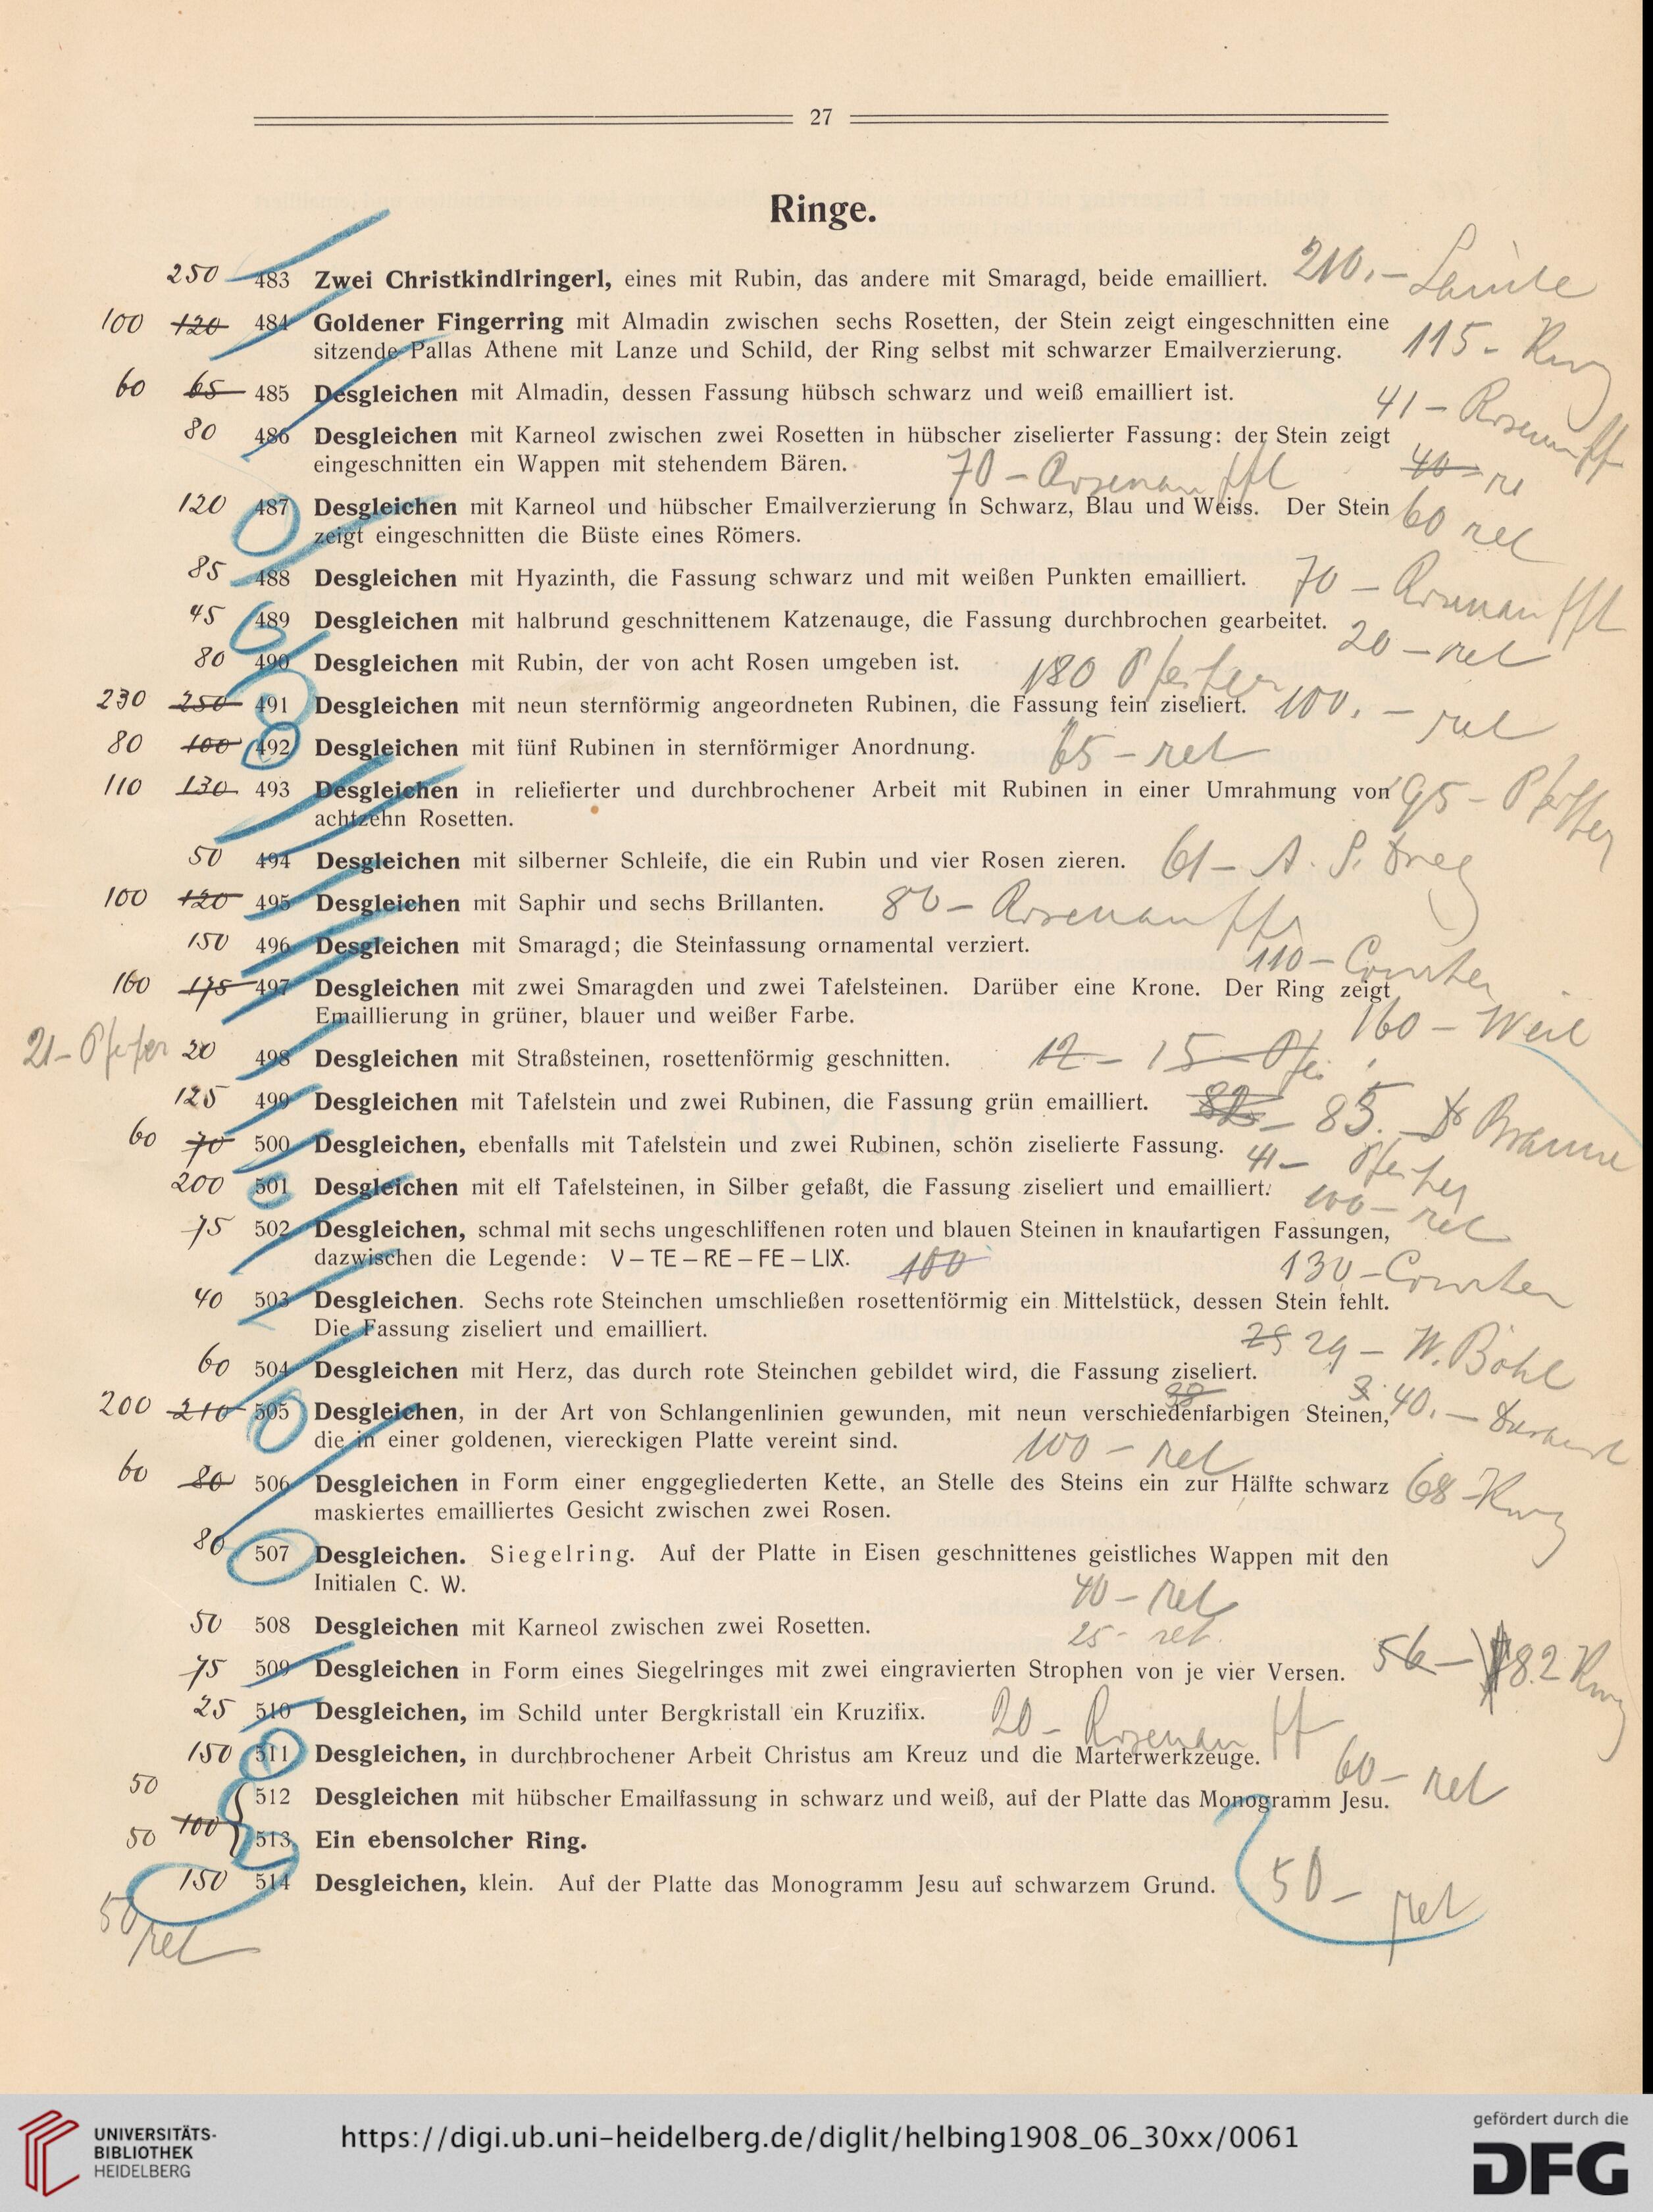 27
Ringe.
250 483 Zwei Christkindlringerl, eines mit Rubin, das andere mit Smaragd, beide emailliert. 210.–
100 120 484 Goldener Fingerring mit Almadin zwischen sechs Rosetten, der Stein zeigt eingeschnitten eine
sitzende Pallas Athene mit Lanze und Schild, der Ring selbst mit schwarzer Emailverzierung. 115–
60 65 485 Desgleichen mit Almadin, dessen Fassung hübsch schwarz und weiß emailliert ist. 41–
80 486 Desgleichen mit Karneol zwischen zwei Rosetten in hübscher ziselierter Fassung: der Stein zeigt
eingeschnitten ein Wappen mit stehendem Bären. 70– 40–
120 487 Desgleichen mit Karneol und hübscher Emailverzierung in Schwarz, Blau und Weiss. Der Stein 60 ret
zeigt eingeschnitten die Büste eines Römers.
85 488 Desgleichen mit Hyazinth, die Fassung schwarz und mit weißen Punkten emailliert. 70–
45 489 Desgleichen mit halbrund geschnittenem Katzenauge, die Fassung durchbrochen gearbeitet. 20–ret
80 490 Desgleichen mit Rubin, der von acht Rosen umgeben ist. 180 Pfeifer
230 250 491 Desgleichen mit neun sternförmig angeordneten Rubinen, die Fassung fein ziseliert. 100.– ret
80 100 492 Desgleichen mit fünf Rubinen in sternförmiger Anordnung. 65–ret
110 130 493 Desgleichen in reliefierter und durchbrochener Arbeit mit Rubinen in einer Umrahmung von 95–
achtzehn Rosetten.
50 494 Desgleichen mit silberner Schleife, die ein Rubin und vier Rosen zieren. 61– A. S. Drey
100 120 495 Desgleichen mit Saphir und sechs Brillanten. 80–
150 496 Desgleichen mit Smaragd; die Steinfassung ornamental verziert. 110–
160 175 497 Desgleichen mit zwei Smaragden und zwei Tafelsteinen. Darüber eine Krone. Der Ring zeigt
Emaillierung in grüner, blauer und weißer Farbe. 160– Weil
21– 20 498 Desgleichen mit Straßsteinen, rosettenförmig geschnitten. 12– 15–
125 499 Desgleichen mit Tafelstein und zwei Rubinen, die Fassung grün emailliert. 82– 85.
60 70 500 Desgleichen, ebenfalls mit Tafelstein und zwei Rubinen, schön ziselierte Fassung. 41–
200 501 Desgleichen mit elf Tafelsteinen, in Silber gefaßt, die Fassung ziseliert und emailliert. 100– ret
75 502 Desgleichen, schmal mit sechs ungeschliffenen roten und blauen Steinen in knaufartigen Fassungen,
dazwischen die Legende: V – TE – RE – FE – LIX. 100 130–
40 503 Desgleichen. Sechs rote Steinchen umschließen rosettenförmig ein Mittelstück, dessen Stein fehlt.
Die Fassung ziseliert und emailliert. 25 29– W. Böhl
60 504 Desgleichen mit Herz, das durch rote Steinchen gebildet wird, die Fassung ziseliert.
38 40.–
200 210 505 Desgleichen, in der Art von Schlangenlinien gewunden, mit neun verschiedenfarbigen Steinen,
die in einer goldenen, viereckigen Platte vereint sind. 100– ret
60 80 506 Desgleichen in Form einer enggegliederten Kette, an Stelle des Steins ein zur Hälfte schwarz 68–
maskiertes emailliertes Gesicht zwischen zwei Rosen.
80 507 Desgleichen. Siegelring. Auf der Platte in Eisen geschnittenes geistliches Wappen mit den
Initialen C. W. 40– ret
50 508 Desgleichen mit Karneol zwischen zwei Rosetten. 25– ret.
75 509 Desgleichen in Form eines Siegelringes mit zwei eingravierten Strophen von je vier Versen. 56– 82
25 510 Desgleichen, im Schild unter Bergkristall ein Kruzifix. 20–
150 511 Desgleichen, in durchbrochener Arbeit Christus am Kreuz und die Marterwerkzeuge. 60– ret
50 512 Desgleichen mit hübscher Emailfassung in schwarz und weiß, auf der Platte das Monogramm Jesu.
50 100 513 Ein ebensolcher Ring.
150 514 Desgleichen, klein. Auf der Platte das Monogramm Jesu auf schwarzem Grund. 50– ret
50 ret
UNIVERSITÄTS-
BIBLIOTHEK
HEIDELBERG
https://digi.ub.uni-heidelberg.de/diglit/helbing1908_06_30xx/0061
gefördert durch die
DFG